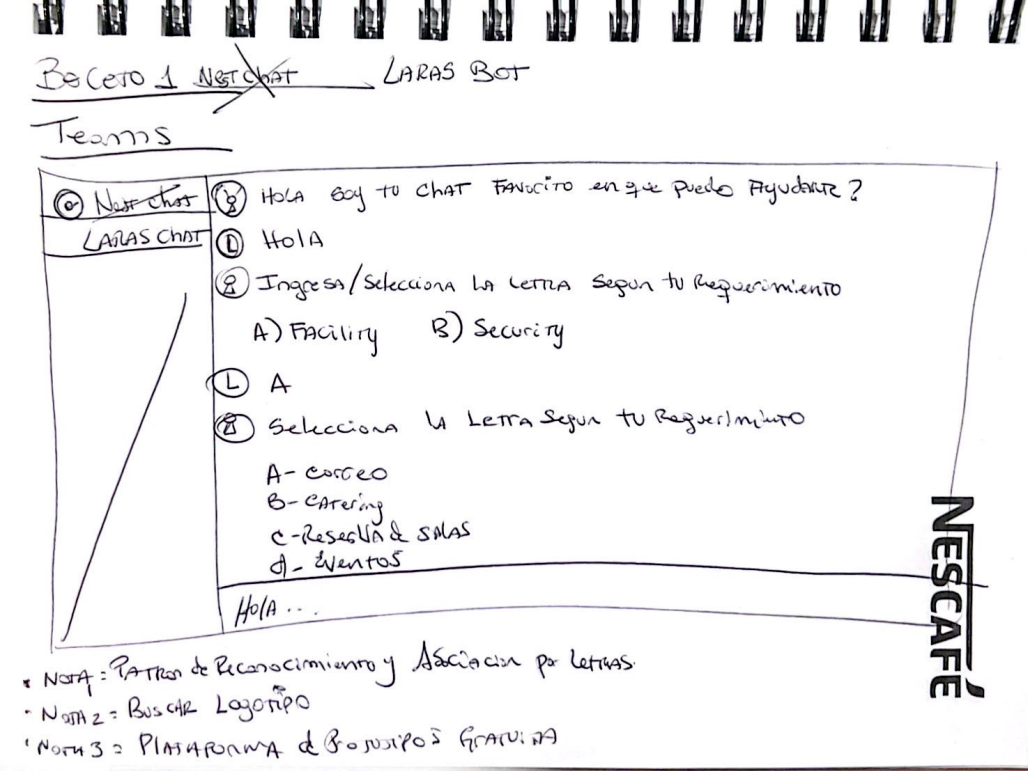 Boceto 1 Nest Chat LARAS BOT
Teams
Nest Chat
LARAS CHAT
HOLA soy tu CHAT FAVOCITO en que puedo Ayudarte?
HOLA
Ingresa/Selecciona LA LETRA Segun tu Requerimiento
A) Facility B) Security
L A
Selecciona LA LETRA Segun tu Requerimiento
A- correo
B- Catering
C- Reserva de SALAS
d- Eventos
HOLA...
NESCAFÉ
• NOTA 1 = PATRON de Reconocimiento y Asociacion por LETRAS.
• NOTA 2 = BUSCAR Logotipo
• NOTA 3 = PLATAFORMA d Prototipos GRATUITA